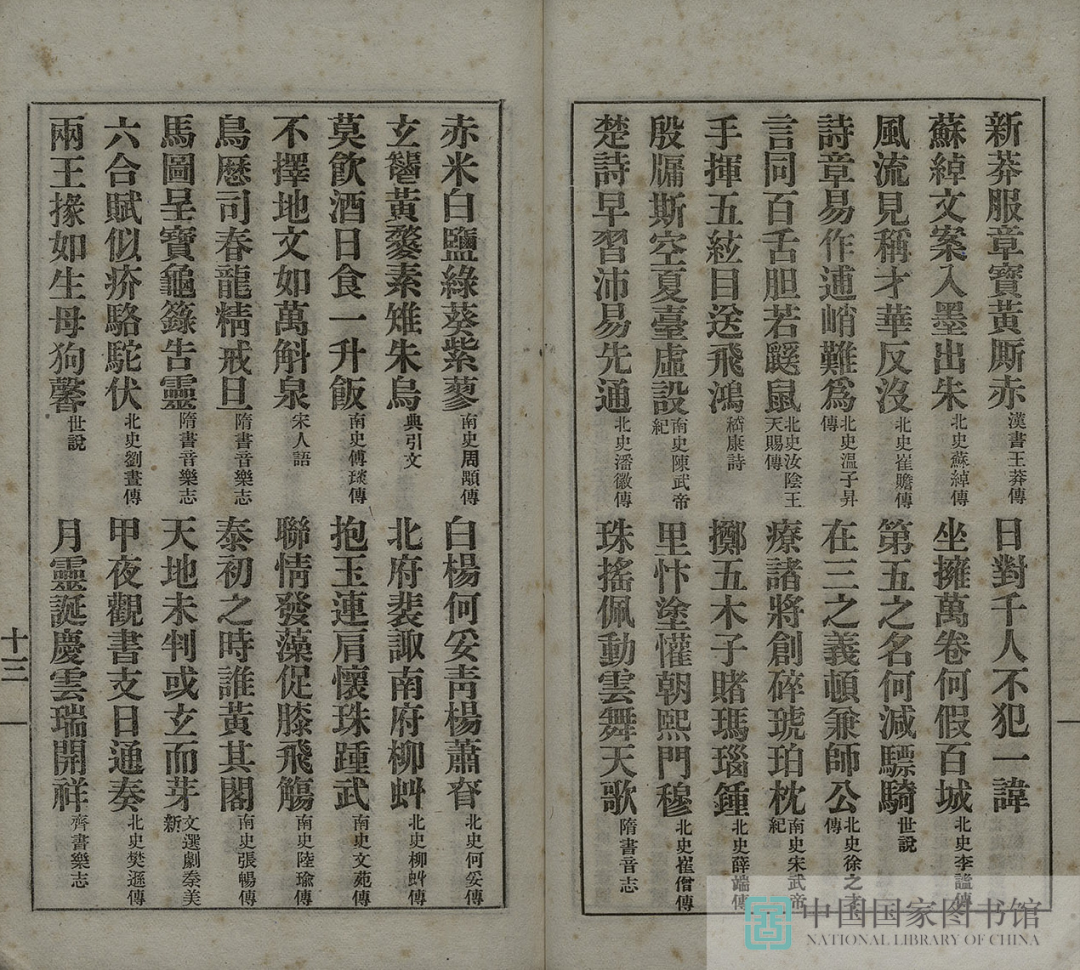 新莽服章寶黃厮赤 漢書王莽傳 日對千人不犯一諱
蘇綽文案入墨出朱 北史蘇綽傳 坐擁萬卷何假百城 北史李謐傳
風流見稱才華反沒 北史崔贍傳 第五之名何減驃騎 世說
詩章易作逋峭難爲 北史温子昇傳 在三之義頓兼師公 北史徐之才傳
言同百舌胆若鼷鼠 北史汝陰王天賜傳 療諸將創碎琥珀枕 南史宋武帝紀
手揮五絃目送飛鴻 嵇康詩 擲五木子賭瑪瑙鍾 北史薛端傳
殷牖斯空夏臺虛設 南史陳武帝紀 里忭塗懽朝熙門穆 北史崔僧傳
楚詩早習沛易先通 北史潘徽傳 珠搖佩動雲舞天歌 隋書音志
赤米白鹽綠葵紫蓼 南史周顒傳 白楊何妥青楊蕭眘 北史何妥傳
玄黃素雉朱烏 典引文 北府裴諏南府柳虯 北史柳虯傳
莫飮酒日食一升飯 南史傅琰傳 抱玉連肩懷珠踵武 南史文苑傳
不擇地文如萬斛泉 宋人語 聯情發藻促膝飛觴 南史陸瑜傳
鳥歷司春龍精戒旦 隋書音樂志 泰初之時誰黃其閣 南史張暢傳
馬圖呈寶龜籙告靈 隋書音樂志 天地未判或玄而芽 文選劇秦美新
六合賦似疥駱駝伏 北史劉晝傳 甲夜觀書支日通奏 北史樊遜傳
兩王掾如生母狗馨 世說 月靈誕慶雲瑞開祥 齊書樂志
十三
中国国家图书馆
NATIONAL LIBRARY OF CHINA